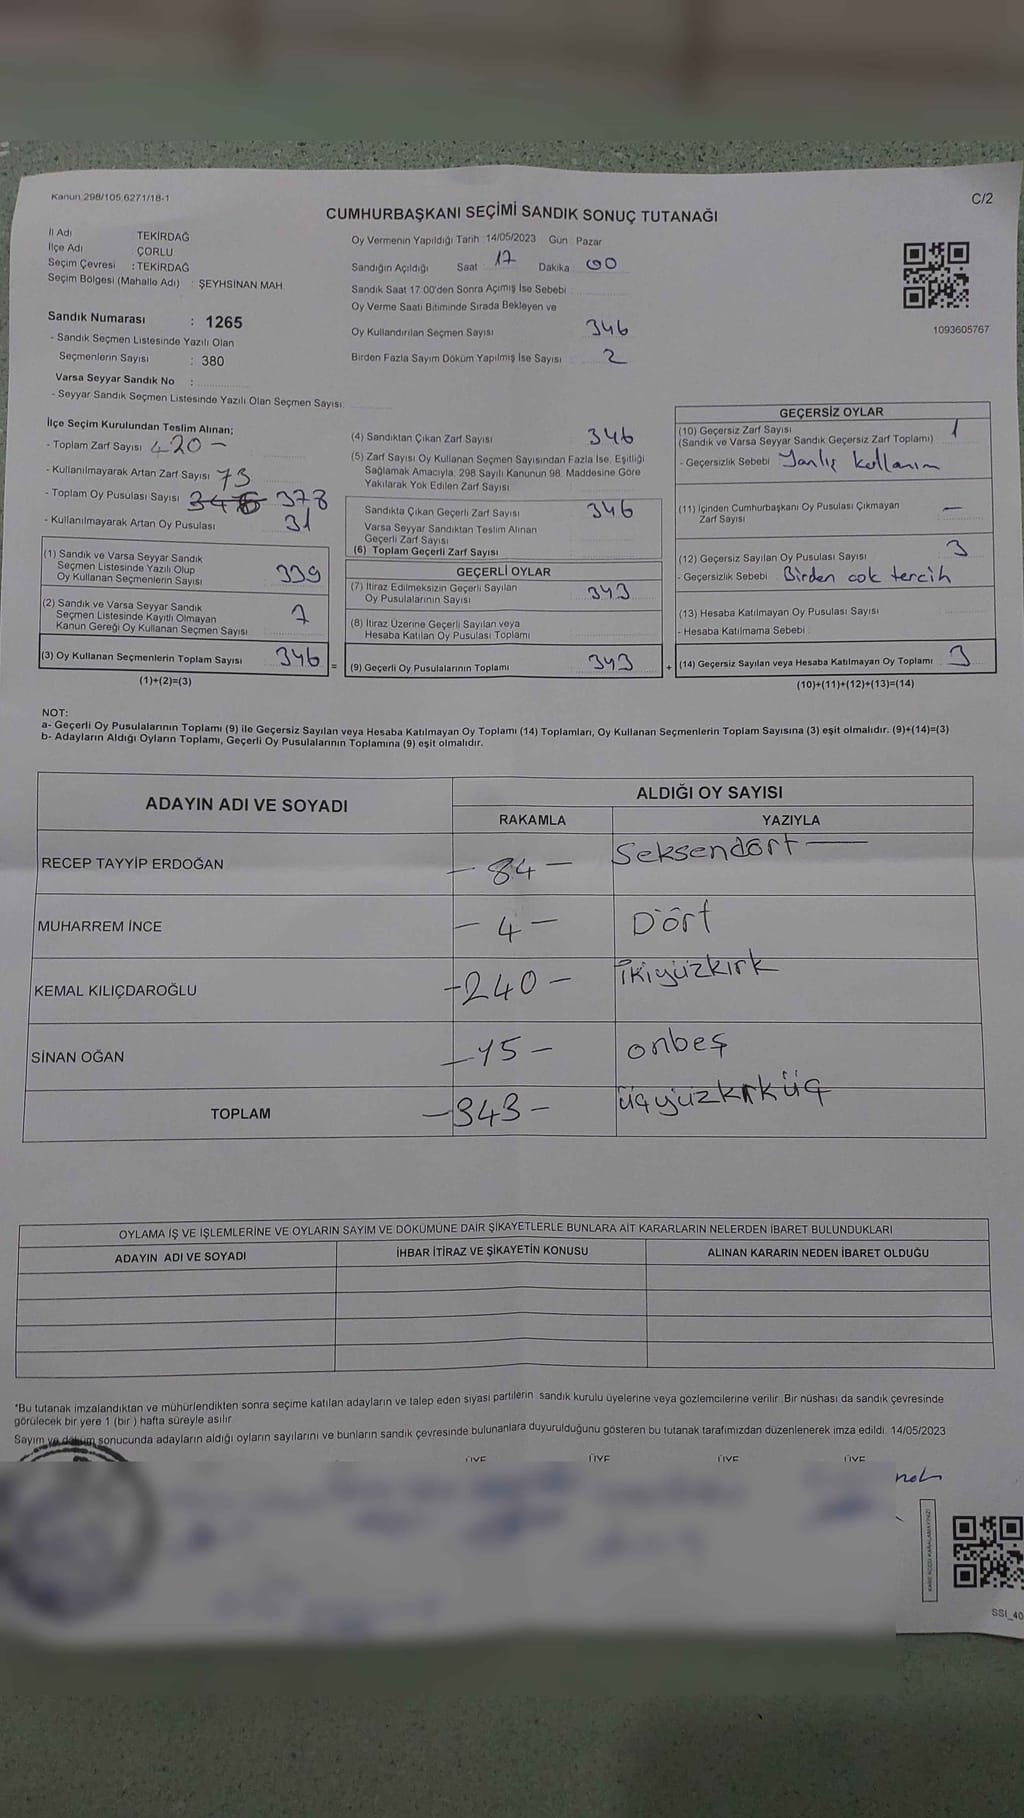 Kanun 298/105,6271/18-1
C/2
CUMHURBAŞKANI SEÇİMİ SANDIK SONUÇ TUTANAĞI
İl Adı TEKİRDAĞ
İlçe Adı ÇORLU
Seçim Çevresi : TEKİRDAĞ
Seçim Bölgesi (Mahalle Adı) : ŞEYHSİNAN MAH.
Sandık Numarası : 1265
- Sandık Seçmen Listesinde Yazılı Olan
Seçmenlerin Sayısı : 380
Varsa Seyyar Sandık No :
- Seyyar Sandık Seçmen Listesinde Yazılı Olan Seçmen Sayısı:
Oy Vermenin Yapıldığı Tarih 14/05/2023 Gün Pazar
Sandığın Açıldığı Saat 17 Dakika 00
Sandık Saat 17:00'den Sonra Açılmış İse Sebebi
Oy Verme Saati Bitiminde Sırada Bekleyen ve
Oy Kullandırılan Seçmen Sayısı 346
Birden Fazla Sayım Döküm Yapılmış İse Sayısı 2
1093605767
İlçe Seçim Kurulundan Teslim Alınan;
- Toplam Zarf Sayısı 420 -
- Kullanılmayarak Artan Zarf Sayısı 73
- Toplam Oy Pusulası Sayısı 378
- Kullanılmayarak Artan Oy Pusulası 31
(1) Sandık ve Varsa Seyyar Sandık
Seçmen Listesinde Yazılı Olup
Oy Kullanan Seçmenlerin Sayısı 339
(2) Sandık ve Varsa Seyyar Sandık
Seçmen Listesinde Kayıtlı Olmayan
Kanun Gereği Oy Kullanan Seçmen Sayısı 7
(3) Oy Kullanan Seçmenlerin Toplam Sayısı 346 =
(1)+(2)=(3)
(4) Sandıktan Çıkan Zarf Sayısı 346
(5) Zarf Sayısı Oy Kullanan Seçmen Sayısından Fazla İse, Eşitliği
Sağlamak Amacıyla, 298 Sayılı Kanunun 98. Maddesine Göre
Yakılarak Yok Edilen Zarf Sayısı
Sandıkta Çıkan Geçerli Zarf Sayısı 346
Varsa Seyyar Sandıktan Teslim Alınan
Geçerli Zarf Sayısı
(6) Toplam Geçerli Zarf Sayısı
GEÇERLİ OYLAR
(7) İtiraz Edilmeksizin Geçerli Sayılan
Oy Pusulalarının Sayısı 343
(8) İtiraz Üzerine Geçerli Sayılan veya
Hesaba Katılan Oy Pusulası Toplamı
(9) Geçerli Oy Pusulalarının Toplamı 343 +
GEÇERSİZ OYLAR
(10) Geçersiz Zarf Sayısı 1
(Sandık ve Varsa Seyyar Sandık Geçersiz Zarf Toplamı)
- Geçersizlik Sebebi Yanlış kullanım
(11) İçinden Cumhurbaşkanı Oy Pusulası Çıkmayan —
Zarf Sayısı
(12) Geçersiz Sayılan Oy Pusulası Sayısı 3
- Geçersizlik Sebebi Birden cok tercih
(13) Hesaba Katılmayan Oy Pusulası Sayısı
- Hesaba Katılmama Sebebi
(14) Geçersiz Sayılan veya Hesaba Katılmayan Oy Toplamı 3
(10)+(11)+(12)+(13)=(14)
NOT:
a- Geçerli Oy Pusulalarının Toplamı (9) ile Geçersiz Sayılan veya Hesaba Katılmayan Oy Toplamı (14) Toplamları, Oy Kullanan Seçmenlerin Toplam Sayısına (3) eşit olmalıdır. (9)+(14)=(3)
b- Adayların Aldığı Oyların Toplamı, Geçerli Oy Pusulalarının Toplamına (9) eşit olmalıdır.
ADAYIN ADI VE SOYADI ALDIĞI OY SAYISI
RAKAMLA YAZIYLA
RECEP TAYYİP ERDOĞAN - 84 - Seksendört —
MUHARREM İNCE - 4 - Dört
KEMAL KILIÇDAROĞLU - 240 - İkiyüzkırk
SİNAN OĞAN - 15 - onbeş
TOPLAM - 343 - üçyüzkırküç
OYLAMA İŞ VE İŞLEMLERİNE VE OYLARIN SAYIM VE DÖKÜMÜNE DAİR ŞİKAYETLERLE BUNLARA AİT KARARLARIN NELERDEN İBARET BULUNDUKLARI
ADAYIN ADI VE SOYADI İHBAR İTİRAZ VE ŞİKAYETİN KONUSU ALINAN KARARIN NEDEN İBARET OLDUĞU
*Bu tutanak imzalandıktan ve mühürlendikten sonra seçime katılan adayların ve talep eden siyasi partilerin sandık kurulu üyelerine veya gözlemcilerine verilir. Bir nüshası da sandık çevresinde
görülecek bir yere 1 (bir) hafta süreyle asılır
Sayım ve döküm sonucunda adayların aldığı oyların sayılarını ve bunların sandık çevresinde bulunanlara duyurulduğunu gösteren bu tutanak tarafımızdan düzenlenerek imza edildi. 14/05/2023
ÜYE ÜYE ÜYE ÜYE
KARE KODU KARALAMAYINIZ!
SSI_40